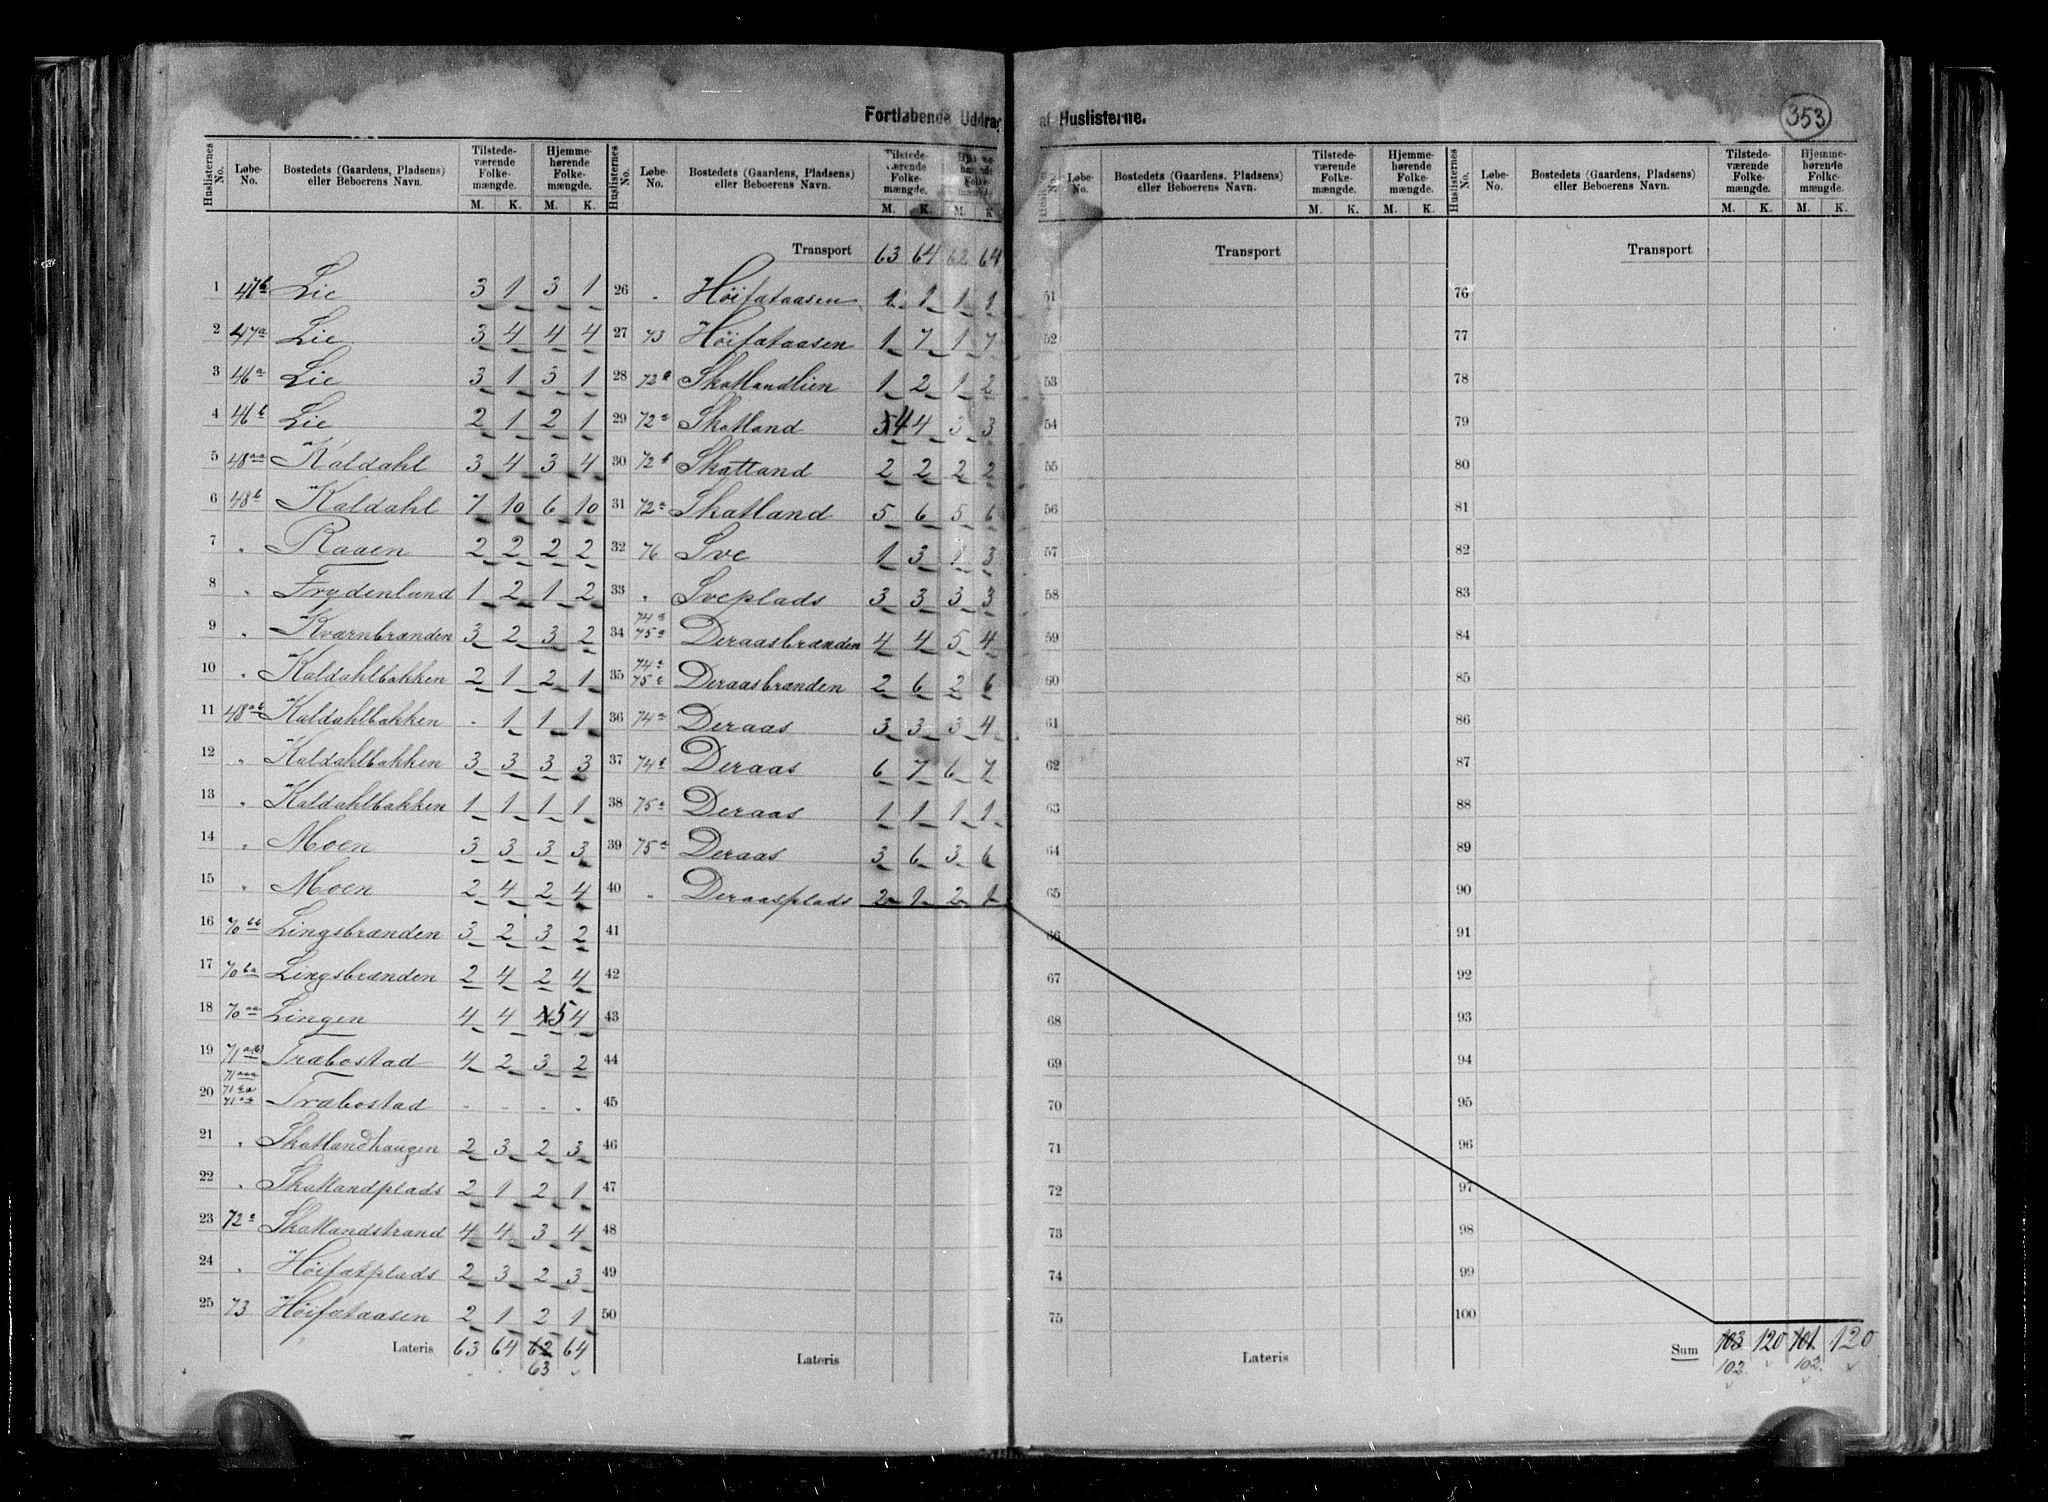 Fortløbende Uddrag af Huslisterne.
353
Huslisternes No. | Løbe-No. | Bostedets (Gaardens, Pladsens) eller Beboerens Navn. | Tilstedeværende Folkemængde. M. K. | Hjemmehørende Folkemængde. M. K.
1 47b Lie 3 1 3 1
2 47a Lie 3 4 4 4
3 46a Lie 3 1 3 1
4 46b Lie 2 1 2 1
5 48aa Kaldahl 3 4 3 4
6 48b Kaldahl 7 10 6 10
7 " Raaen 2 2 2 2
8 " Frydenlund 1 2 1 2
9 " Kværnbrænden 3 2 3 2
10 " Kaldahlbakken 2 1 2 1
11 48ab Kaldahlbakken - 1 1 1
12 " Kaldahlbakken 3 3 3 3
13 " Kaldahlbakken 1 1 1 1
14 " Moen 3 3 3 3
15 " Moen 2 4 2 4
16 70bb Lingsbrænden 3 2 3 2
17 70ba Lingsbrænden 2 4 2 4
18 70aa Lingen 4 4 4 5 4
19 71ab Træbostad 4 2 3 2
20 Træbostad - - - -
21 " Skatlandhaugen 2 3 2 3
22 " Skatlandplads 2 1 2 1
23 72a Skatlandstrand 4 4 3 4
24 " Höifatplads 2 3 2 3
25 73 Höifataasen 2 1 2 1
Lateris 63 64 62 64
63
Huslisternes No. | Løbe-No. | Bostedets (Gaardens, Pladsens) eller Beboerens Navn. | Tilstedeværende Folkemængde. M. K. | Hjemmehørende Folkemængde. M. K.
Transport 63 64 62 64
26 " Höifataasen 1 1 1 1
27 73 Höifataasen 1 7 1 7
28 72b Skatlandlien 1 2 1 2
29 72a Skatland 5 4 4 3 3
30 72b Skatland 2 2 2 2
31 72a Skatland 5 6 5 6
32 76 Sve 1 3 1 3
33 " Sveplads 3 3 3 3
34 74a 75a Deraasbrænden 4 4 5 4
35 74a 75a Deraasbrænden 2 6 2 6
36 74a Deraas 3 3 3 4
37 74b Deraas 6 7 6 7
38 75a Deraas 1 1 1 1
39 75a Deraas 3 6 3 6
40 " Deraasplads 2 1 2 1
41
42
43
44
45
46
47
48
49
50
Lateris
Huslisternes No. | Løbe-No. | Bostedets (Gaardens, Pladsens) eller Beboerens Navn. | Tilstedeværende Folkemængde. M. K. | Hjemmehørende Folkemængde. M. K.
Transport
51
52
53
54
55
56
57
58
59
60
61
62
63
64
65
66
67
68
69
70
71
72
73
74
75
Lateris
Huslisternes No. | Løbe-No. | Bostedets (Gaardens, Pladsens) eller Beboerens Navn. | Tilstedeværende Folkemængde. M. K. | Hjemmehørende Folkemængde. M. K.
Transport
76
77
78
79
80
81
82
83
84
85
86
87
88
89
90
91
92
93
94
95
96
97
98
99
100
Sum 103 120 101 120
102. 102.